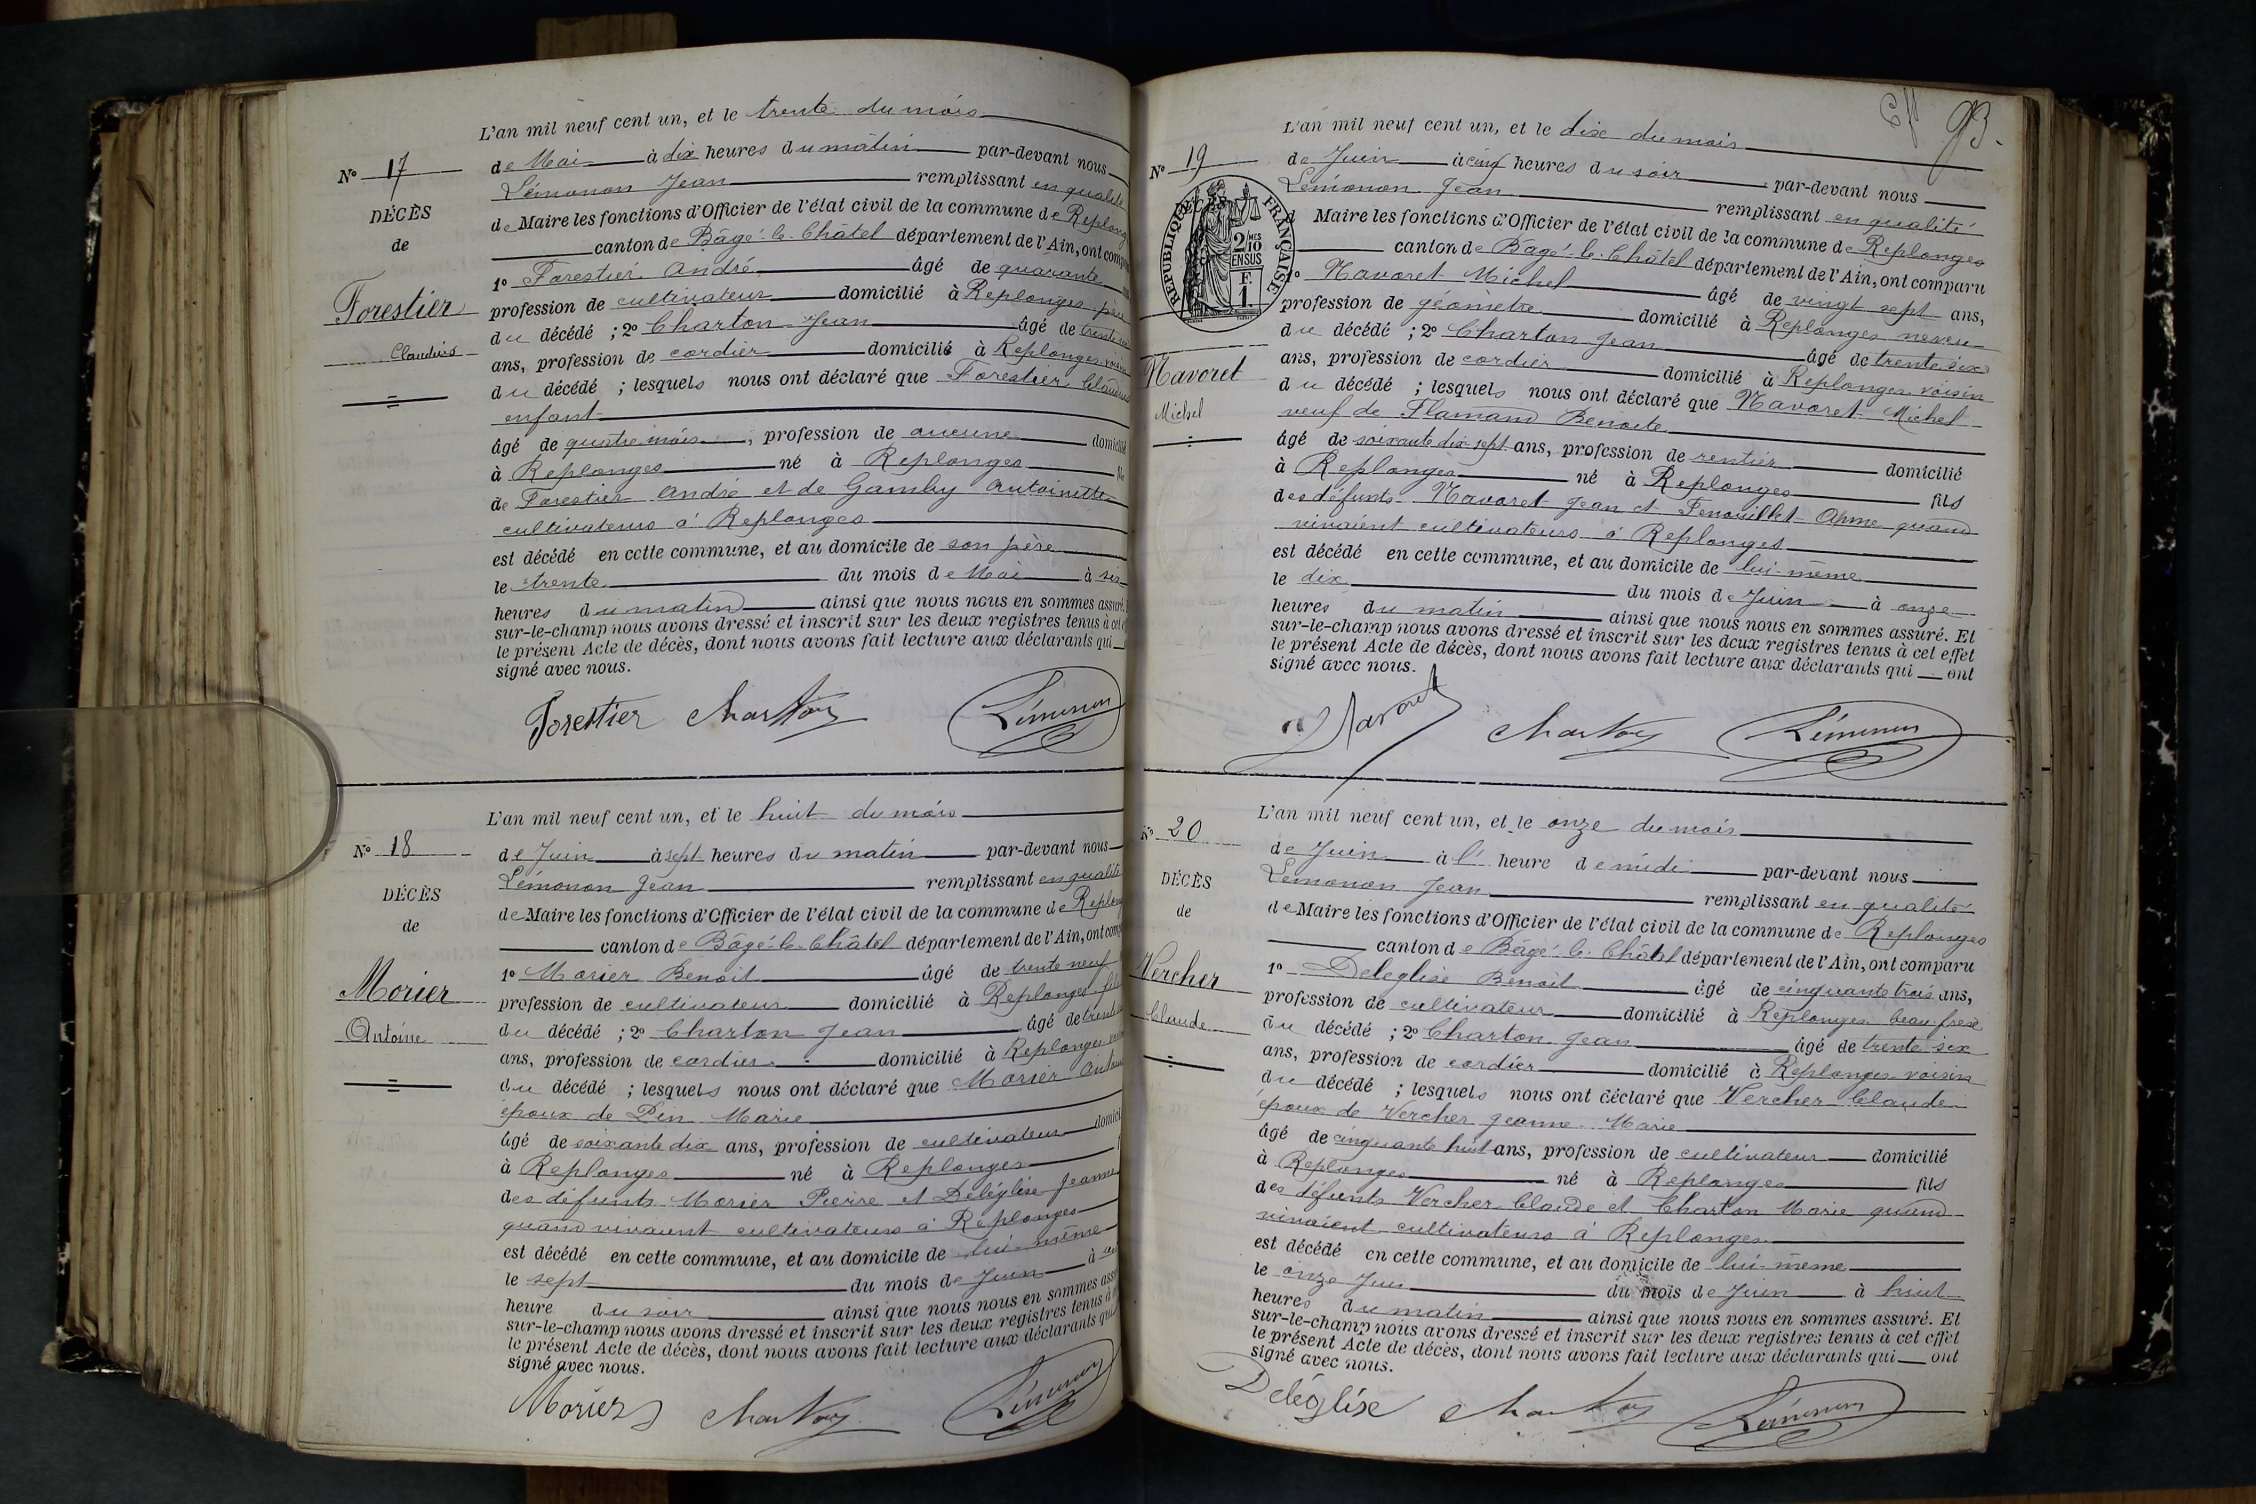 L'an mil neuf cent un, et le trente du mois
N° 17
de Mai à dix heures du matin par-devant nous
Lémonon Jean remplissant en qualité
DÉCÈS
de Maire les fonctions d'Officier de l'état civil de la commune de Replong
de
canton de Bâgé-le-Châtel département de l'Ain, ont comp
1° Forestier André âgé de quarante
Forestier
profession de cultivateur domicilié à Replonges père
du décédé ; 2° Charton Jean âgé de trente
Claudius
ans, profession de cordier domicilié à Replonges voisin
du décédé ; lesquels nous ont déclaré que Forestier Claudius
enfant
âgé de quatre mois, profession de aucune domicilié
à Replonges né à Replonges fils
de Forestier André et de Gamby Antoinette
cultivateurs à Replonges
est décédé en cette commune, et au domicile de son père
le trente du mois de Mai à six
heures du matin ainsi que nous nous en sommes assuré.
sur-le-champ nous avons dressé et inscrit sur les deux registres tenus à cet e
le présent Acte de décès, dont nous avons fait lecture aux déclarants qui
signé avec nous.
Forestier Charton Lémonon
L'an mil neuf cent un, et le huit du mois
N° 18
de Juin à sept heures du matin par-devant nous
Lémonon Jean remplissant en qualité
DÉCÈS
de Maire les fonctions d'Officier de l'état civil de la commune de Replong
de
canton de Bâgé-le-Châtel département de l'Ain, ont comp
1° Morier Benoit âgé de trente neuf
Morier
profession de cultivateur domicilié à Replonges fils
Antoine
du décédé ; 2° Charton Jean âgé de trente
ans, profession de cordier domicilié à Replonges
du décédé ; lesquels nous ont déclaré que Morier Antoine
époux de Pin Marie
âgé de soixante dix ans, profession de cultivateur domicil
à Replonges né à Replonges
des défunts Morier Pierre et Deléglise Jeanne
quand vivaient cultivateurs à Replonges
est décédé en cette commune, et au domicile de lui-même
le sept du mois de Juin à
heure du soir ainsi que nous nous en sommes assu
sur-le-champ nous avons dressé et inscrit sur les deux registres tenus à
le présent Acte de décès, dont nous avons fait lecture aux déclarants qui
signé avec nous.
Morier Charton Lémonon
93.
L'an mil neuf cent un, et le dix du mois
N° 19
de Juin à cinq heures du soir par-devant nous
Lémonon Jean remplissant en qualité
RÉPUBLIQUE FRANÇAISE
2/10 MES
EN SUS
F.
1.
d Maire les fonctions d'Officier de l'état civil de la commune de Replonges
canton de Bâgé-le-Châtel département de l'Ain, ont comparu
1° Navoret Michel âgé de vingt sept ans,
profession de géomètre domicilié à Replonges neveu
du décédé ; 2° Charton Jean âgé de trente six
Navoret
ans, profession de cordier domicilié à Replonges voisin
Michel
du décédé ; lesquels nous ont déclaré que Navoret Michel
veuf de Flamand Benoite
âgé de soixante dix sept ans, profession de rentier domicilié
à Replonges né à Replonges fils
des défunts Navoret Jean et Fenouillet Anne quand
vivaient cultivateurs à Replonges
est décédé en cette commune, et au domicile de lui-même
le dix du mois de Juin à onze
heures du matin ainsi que nous nous en sommes assuré. Et
sur-le-champ nous avons dressé et inscrit sur les deux registres tenus à cet effet
le présent Acte de décès, dont nous avons fait lecture aux déclarants qui ont
signé avec nous.
Navoret Charton Lémonon
L'an mil neuf cent un, et le onze du mois
N° 20
de Juin à l' heure de midi par-devant nous
Lémonon Jean remplissant en qualité
DÉCÈS
de Maire les fonctions d'Officier de l'état civil de la commune de Replonges
de
canton de Bâgé-le-Châtel département de l'Ain, ont comparu
1° Deleglise Benoit âgé de cinquante trois ans,
Vercher
profession de cultivateur domicilié à Replonges beau-frère
Claude
du décédé ; 2° Charton Jean âgé de trente six
ans, profession de cordier domicilié à Replonges voisin
du décédé ; lesquels nous ont déclaré que Vercher Claude
époux de Vercher Jeanne-Marie
âgé de cinquante huit ans, profession de cultivateur domicilié
à Replonges né à Replonges fils
des défunts Vercher Claude et Charton Marie quand
vivaient cultivateurs à Replonges
est décédé en cette commune, et au domicile de lui-même
le onze Juin du mois de Juin à huit
heures du matin ainsi que nous nous en sommes assuré. Et
sur-le-champ nous avons dressé et inscrit sur les deux registres tenus à cet effet
le présent Acte de décès, dont nous avons fait lecture aux déclarants qui ont
signé avec nous.
Deléglise Charton Lémonon